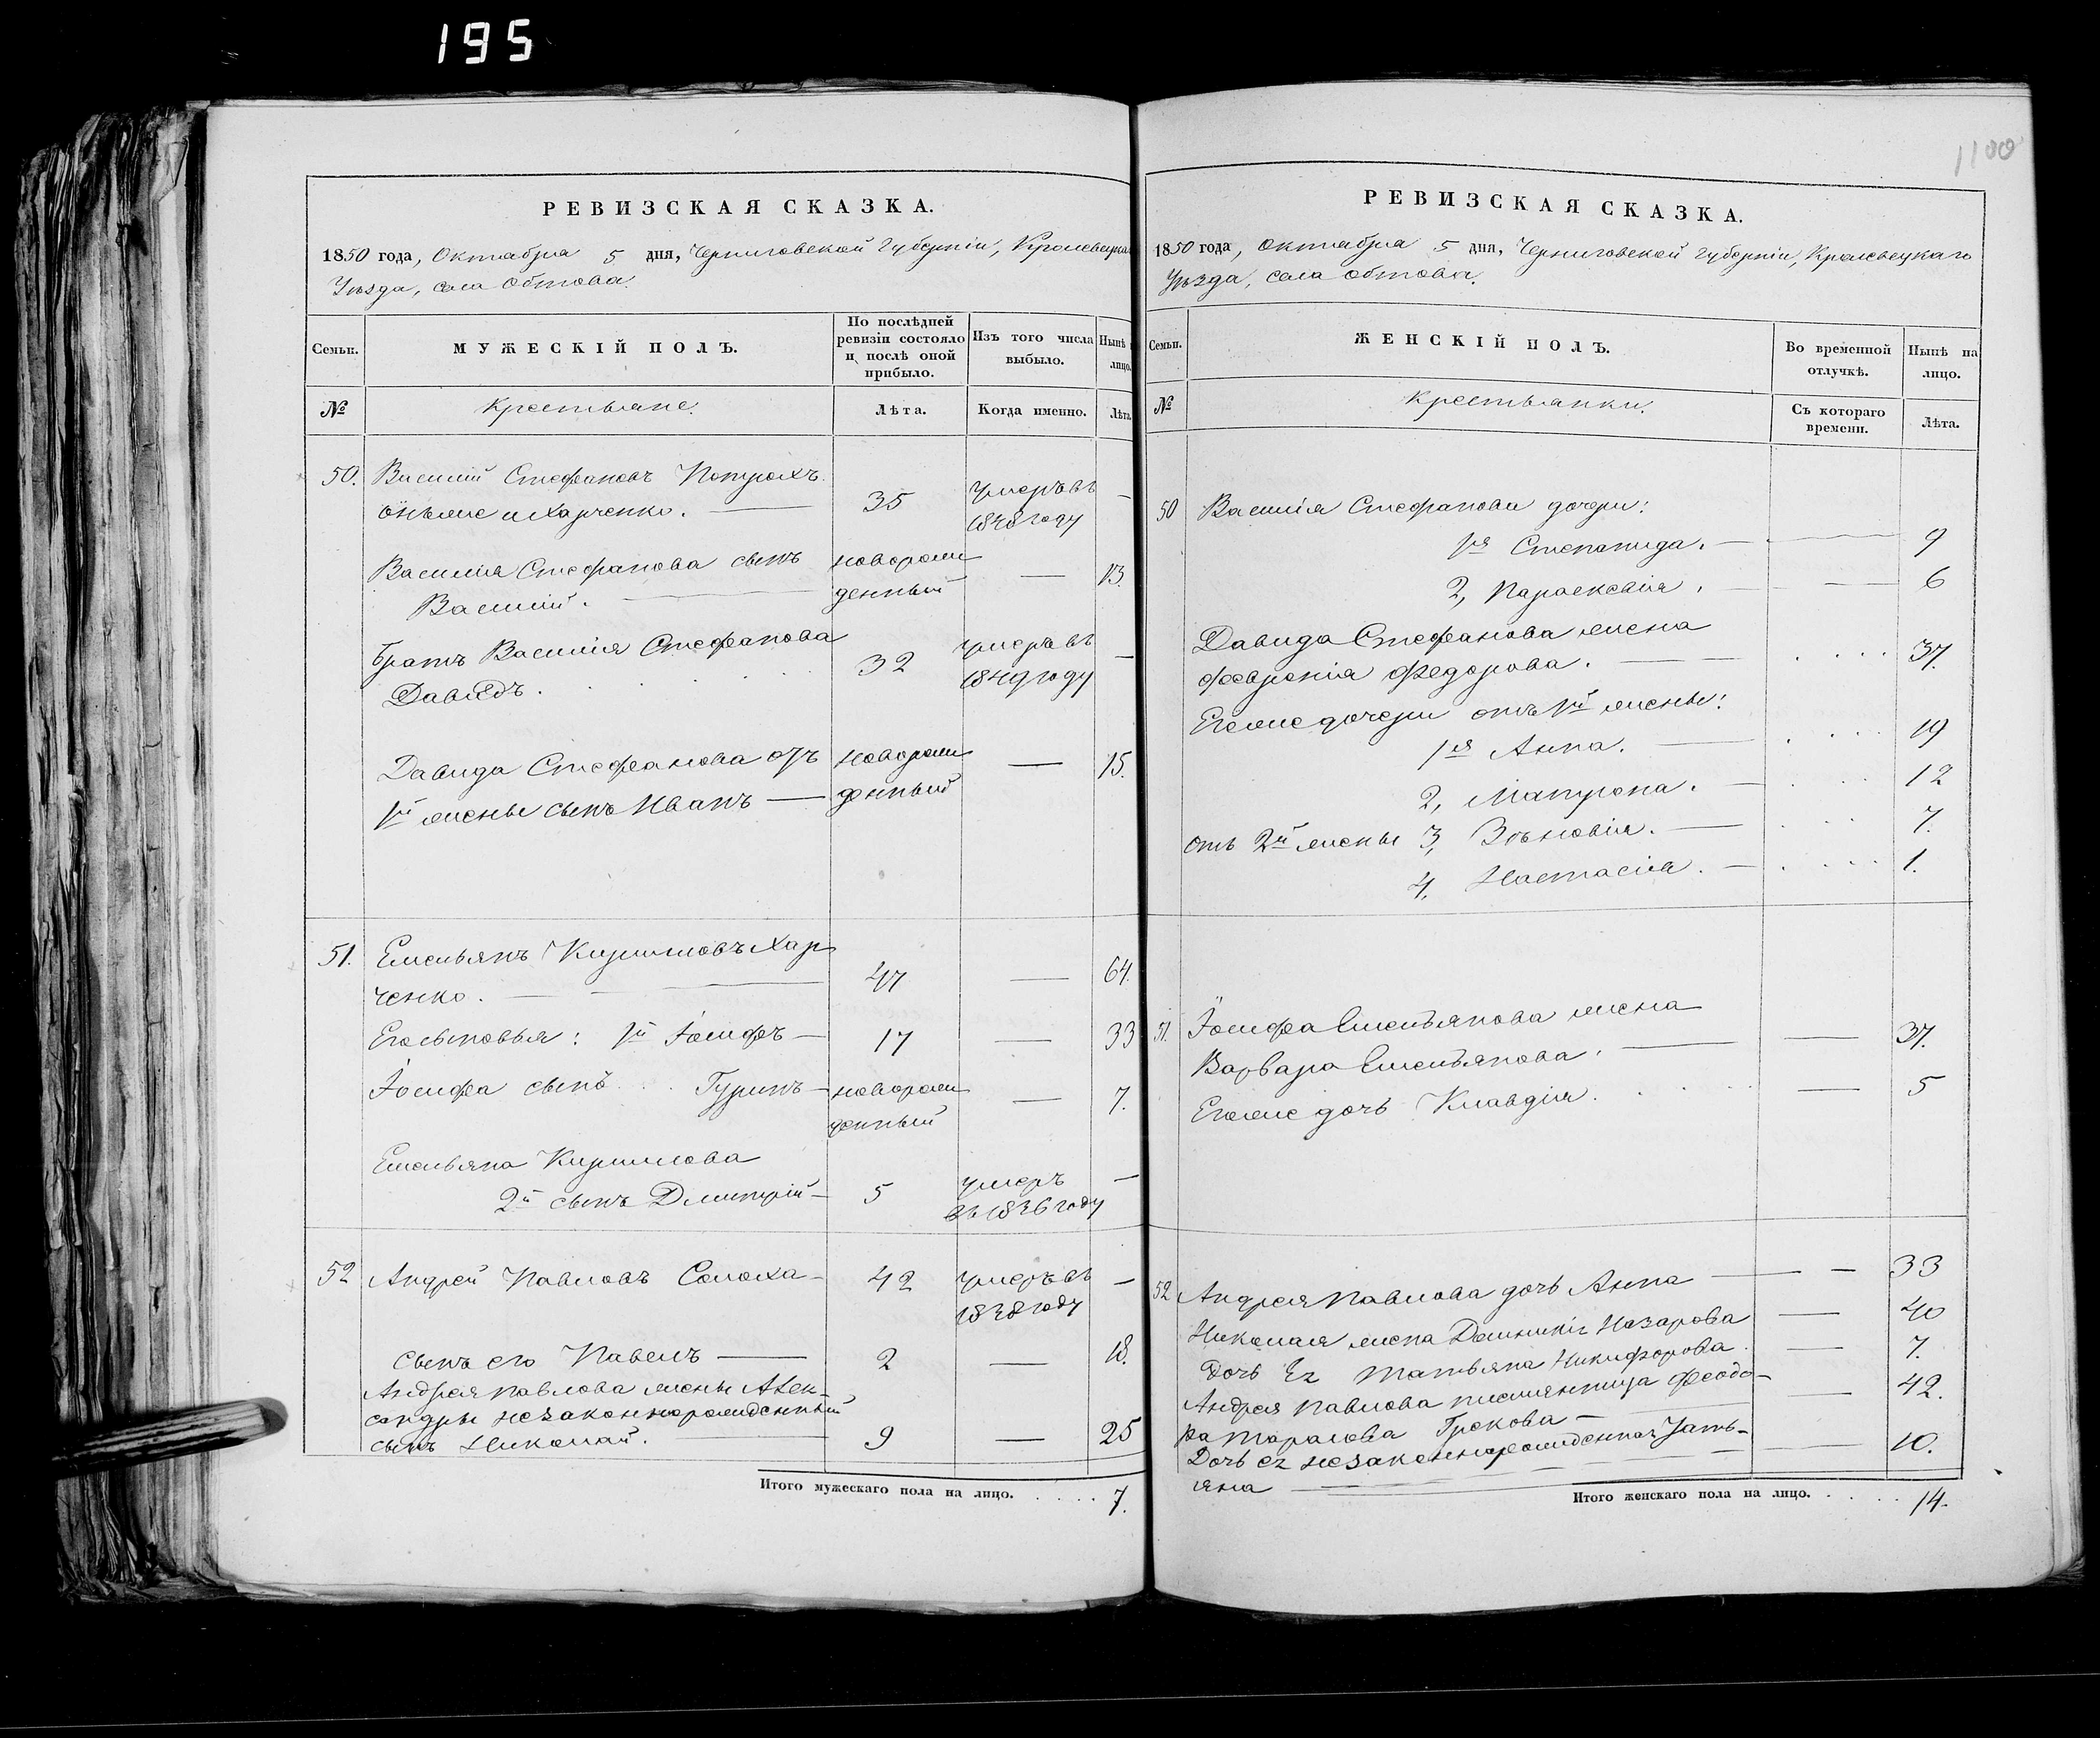 195
РЕВИЗСКАЯ СКАЗКА.
1850 года, Октября 5 дня, Черниговской Губерніи, Кролевецкаго
Уѣзда, села Обтова.
Семьи.
МУЖЕСКІЙ ПОЛЪ.
По послѣдней
ревизіи состояло
и послѣ оной
прибыло.
Изъ того числа
выбыло.
Нынѣ
лицо.
№
Крестьяне.
Лѣта.
Когда именно.
Лѣта.
50. Василій Стефановъ Потрохъ
онъже и Харченко. 35 умеръ въ
1848 году —
Василія Стефанова сынъ
Василій. новорож
денный — 13.
Братъ Василія Стефанова
Давидъ. 32 умеръ въ
1849 году —
Давида Стефанова отъ
1й жены сынъ Иванъ — новорож
денный — 15.
51. Емельянъ Кириловъ Хар
ченко. — 47 — 64.
Его сыновья: 1й Іосифъ — 17 — 33
Іосифа сынъ Гуринъ — новорож
денный — 7.
Емельяна Кирилова
2й сынъ Дмитрій — 5 умеръ
въ 1836 году —
52 Андрей Павловъ Солоха — 42 умеръ въ
1838 году —
Сынъ его Павелъ — 2 — 18.
Андрея Павлова жены Алек-
сандры незаконнорожденный
сынъ Николай. 9 — 25
Итого мужескаго пола на лицо. . . . . 7.
1100
РЕВИЗСКАЯ СКАЗКА.
1850 года, Октября 5 дня, Черниговской Губерніи, Кролевецкаго
Уѣзда, села Обтова.
Семьи.
ЖЕНСКІЙ ПОЛЪ.
Во временной
отлучкѣ.
Нынѣ на
лицо.
№
Крестьянки.
Съ котораго
времени.
Лѣта.
50 Василія Стефанова дочери:
1я Степанида. — 9
2, Параскевія. — 6
Давида Стефанова жена
Февронія Федорова. — 37.
Егоже дочери отъ 1й жены:
1я Анна. — 19
2, Матрона. — 12
отъ 2й жены 3, Зѣновія. — 7.
4, Настасія. — 1.
51. Іосифа Емельянова жена
Варвара Емельянова. — 37.
Егоже дочь Клавдія. — 5
52 Андрея Павлова дочь Анна — 33
Николая жена Домникія Назарова — 40
Дочь Ея Татьяна Никифорова. — 7.
Андрея Павлова Феодо-
ра Тарасова Грекова — 42.
Дочь ея незаконнорожденная Тать-
яна — 10.
Итого женскаго пола на лицо. . . . . 14.